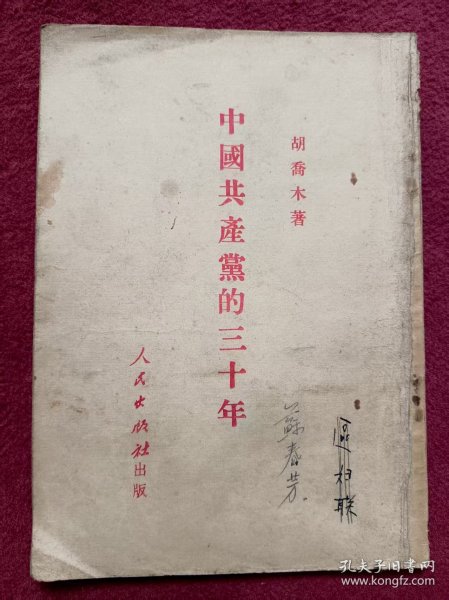 胡喬木著
中國共產黨的三十年
人民出版社出版
蘇春芳
區妇联
孔夫子旧书网
www.kongfz.com